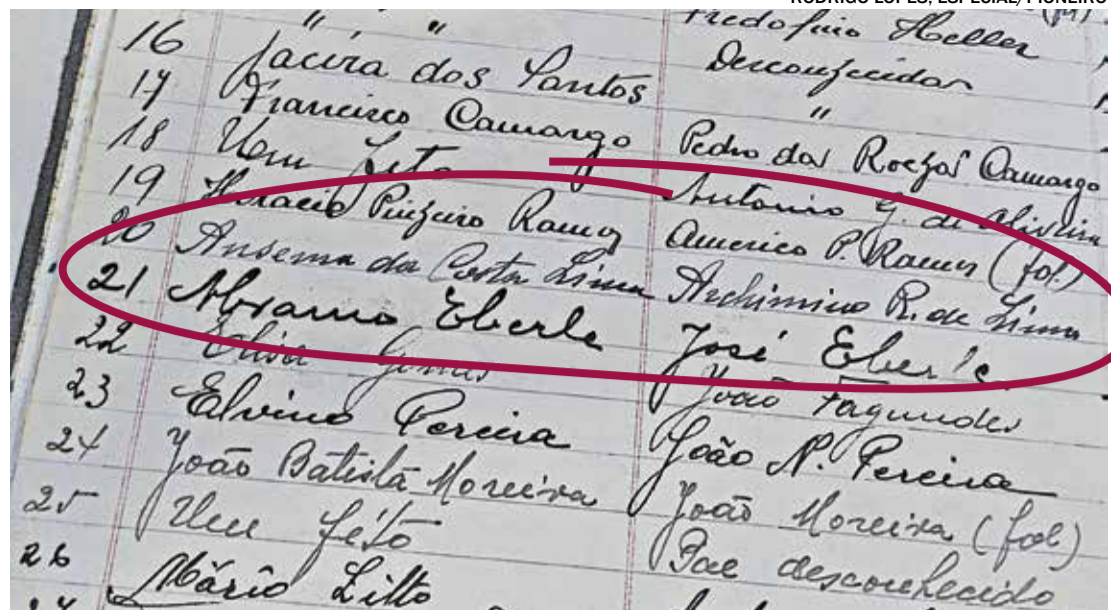 RODRIGO LOPES, ESPECIAL/PIONEIRO
" " Fredolino Heller
16 Jacira dos Santos Desconhecidos
17 Francisco Camargo "
18 Um feto Pedro das Rochas Camargo
19 Horacio Pinheiro Ramos Antonio G. de Oliveira
20 da Costa Lima Americo P. Ramos (fal.)
21 Abramo Eberle Archimino R. de Lima
22 Elisa Gomes José Eberle
23 Elvino Pereira João Fagundes
24 João Batista Moreira João N. Pereira
25 Um féto João Moreira (fal)
26 Mário Pae desconhecido
27